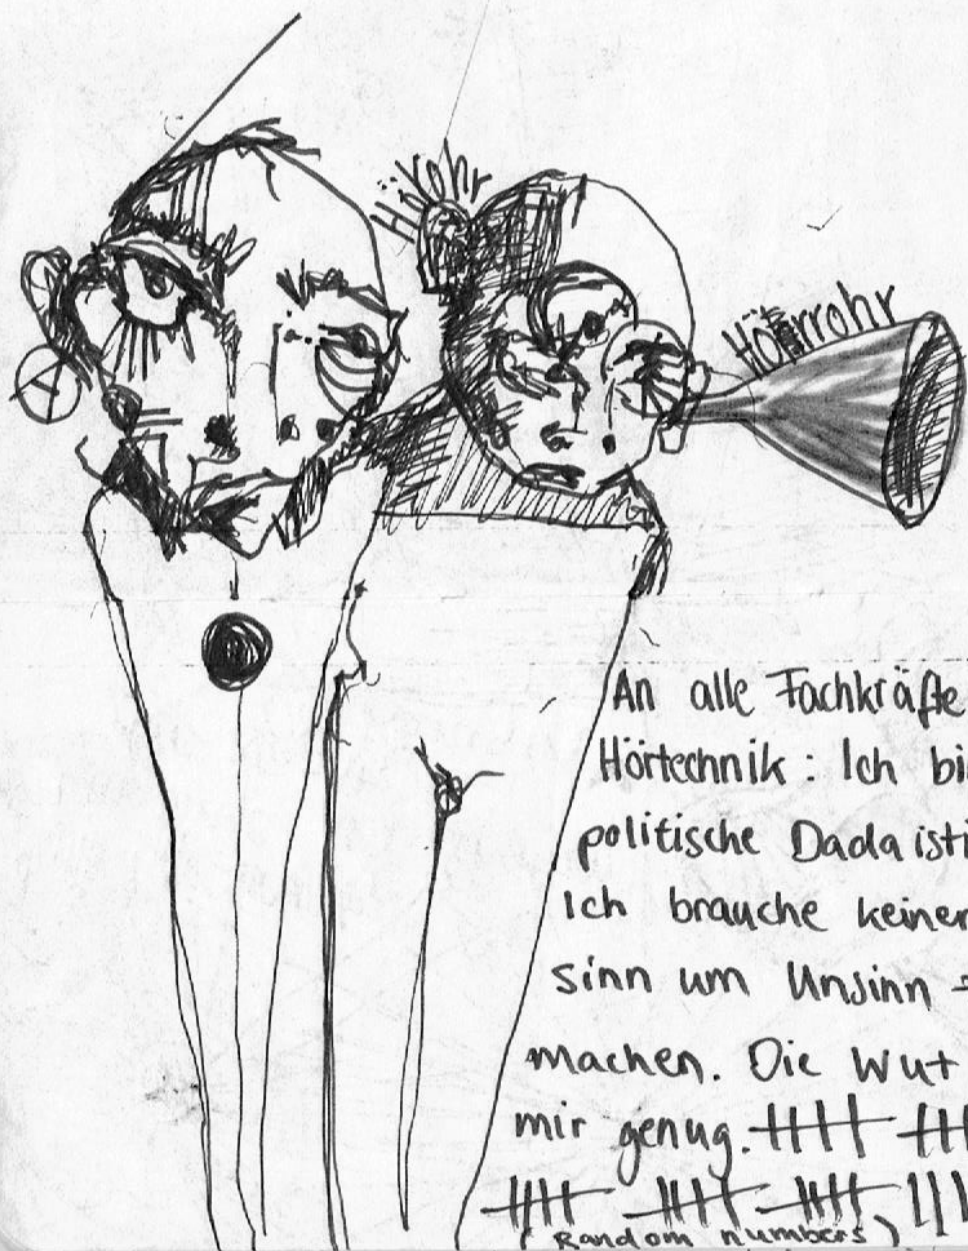 Hörrohr
An alle Fachkräfte
Hörtechnik: Ich bi
politische Dadaisti
Ich brauche keiner
sinn um Unsinn
machen. Die Wut
mir genug.
(Random numbers)